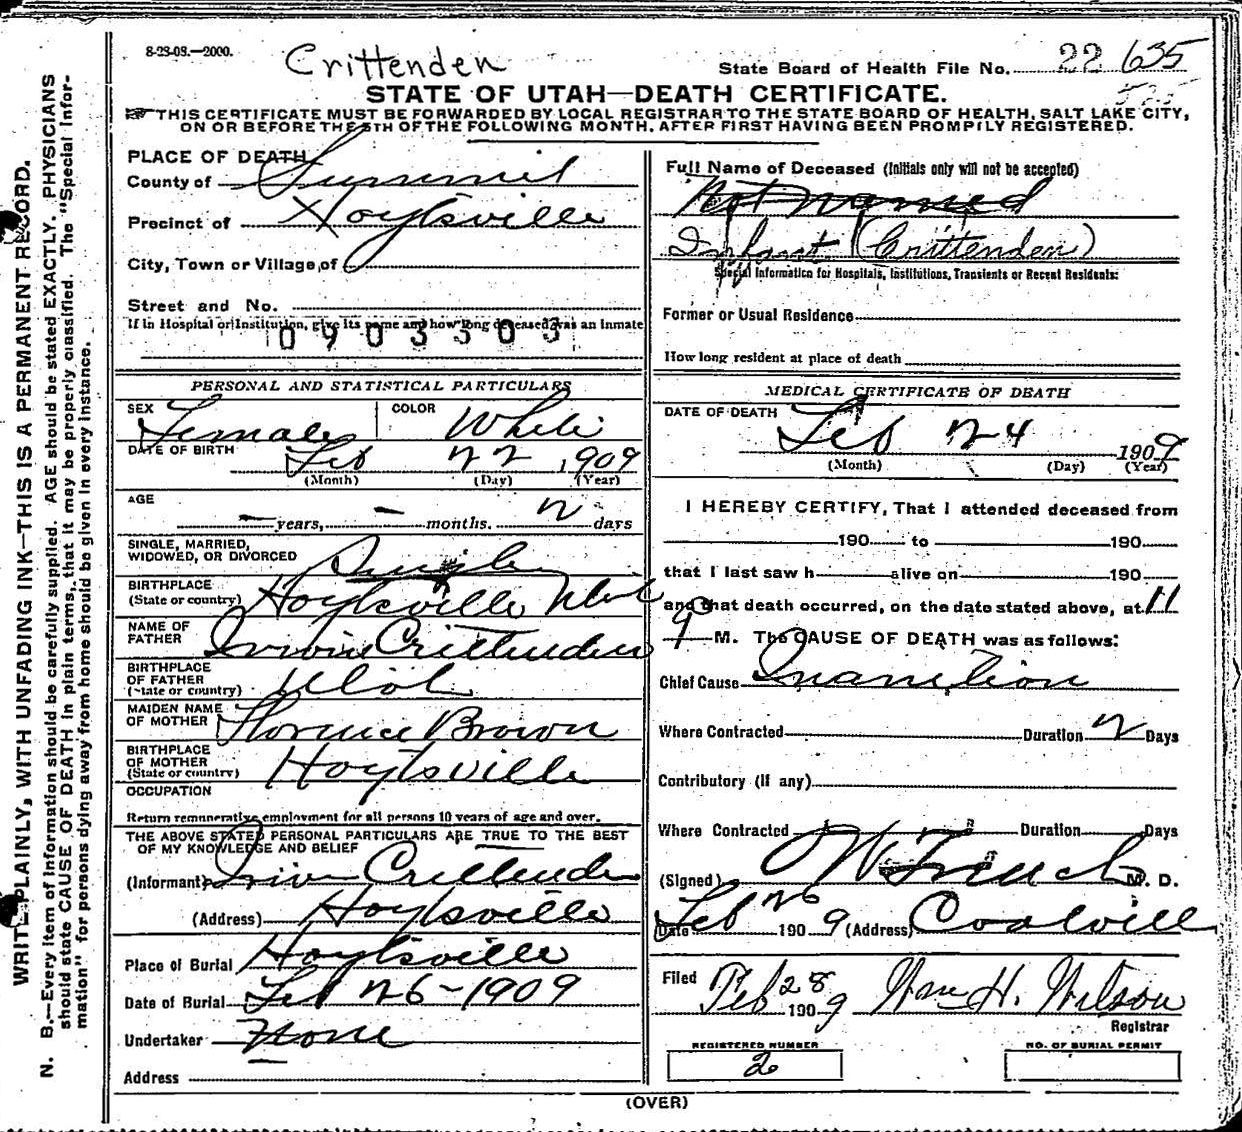 8-23-08.—2000.
Crittenden
State Board of Health File No. 22 635
525
STATE OF UTAH—DEATH CERTIFICATE.
THIS CERTIFICATE MUST BE FORWARDED BY LOCAL REGISTRAR TO THE STATE BOARD OF HEALTH, SALT LAKE CITY,
ON OR BEFORE THE 5TH OF THE FOLLOWING MONTH, AFTER FIRST HAVING BEEN PROMPILY REGISTERED.
WRITE PLAINLY, WITH UNFADING INK—THIS IS A PERMANENT RECORD.
N. B.—Every item of Information should be carefully supplied. AGE should be stated EXACTLY. PHYSICIANS
should state CAUSE OF DEATH in plain terms, that it may be properly classified. The "Special Infor-
mation" for persons dying away from home should be given in every instance.
PLACE OF DEATH
County of Summit
Precinct of Hoytsville
City, Town or Village of
Street and No.
If in Hospital or Institution, give its name and how long deceased was an inmate
0903303
PERSONAL AND STATISTICAL PARTICULARS
SEX Female COLOR White
DATE OF BIRTH Feb 22, 1909
(Month) (Day) (Year)
AGE
— years, — months. 2 days
SINGLE, MARRIED,
WIDOWED, OR DIVORCED Single
BIRTHPLACE
(State or country) Hoytsville Utah
NAME OF
FATHER Irvine Crittenden
BIRTHPLACE
OF FATHER
(State or country) Utah
MAIDEN NAME
OF MOTHER Florence Brown
BIRTHPLACE
OF MOTHER
(State or country) Hoytsville
OCCUPATION
Return remunerative employment for all persons 10 years of age and over.
THE ABOVE STATED PERSONAL PARTICULARS ARE TRUE TO THE BEST
OF MY KNOWLEDGE AND BELIEF
(Informant) Irvin Crittenden
(Address) Hoytsville
Place of Burial Hoytsville
Date of Burial Feb 26-1909
Undertaker None
Address
Full Name of Deceased (Initials only will not be accepted)
Not named
Infant (Crittenden)
Special Information for Hospitals, Institutions, Transients or Recent Residents:
Former or Usual Residence
How long resident at place of death
MEDICAL CERTIFICATE OF DEATH
DATE OF DEATH Feb 24 1909
(Month) (Day) (Year)
I HEREBY CERTIFY, That I attended deceased from
190 to 190
that I last saw h alive on 190
and that death occurred, on the date stated above, at 11
M. The CAUSE OF DEATH was as follows:
Chief Cause Inanition
Where Contracted Duration 2 Days
Contributory (If any)
Where Contracted Duration Days
(Signed) W French M. D.
Date Feb 26 1909 (Address) Coalvill
Filed Feb 28 1909 Wm H. Wilson
Registrar
REGISTERED NUMBER
2
NO. OF BURIAL PERMIT
(OVER)